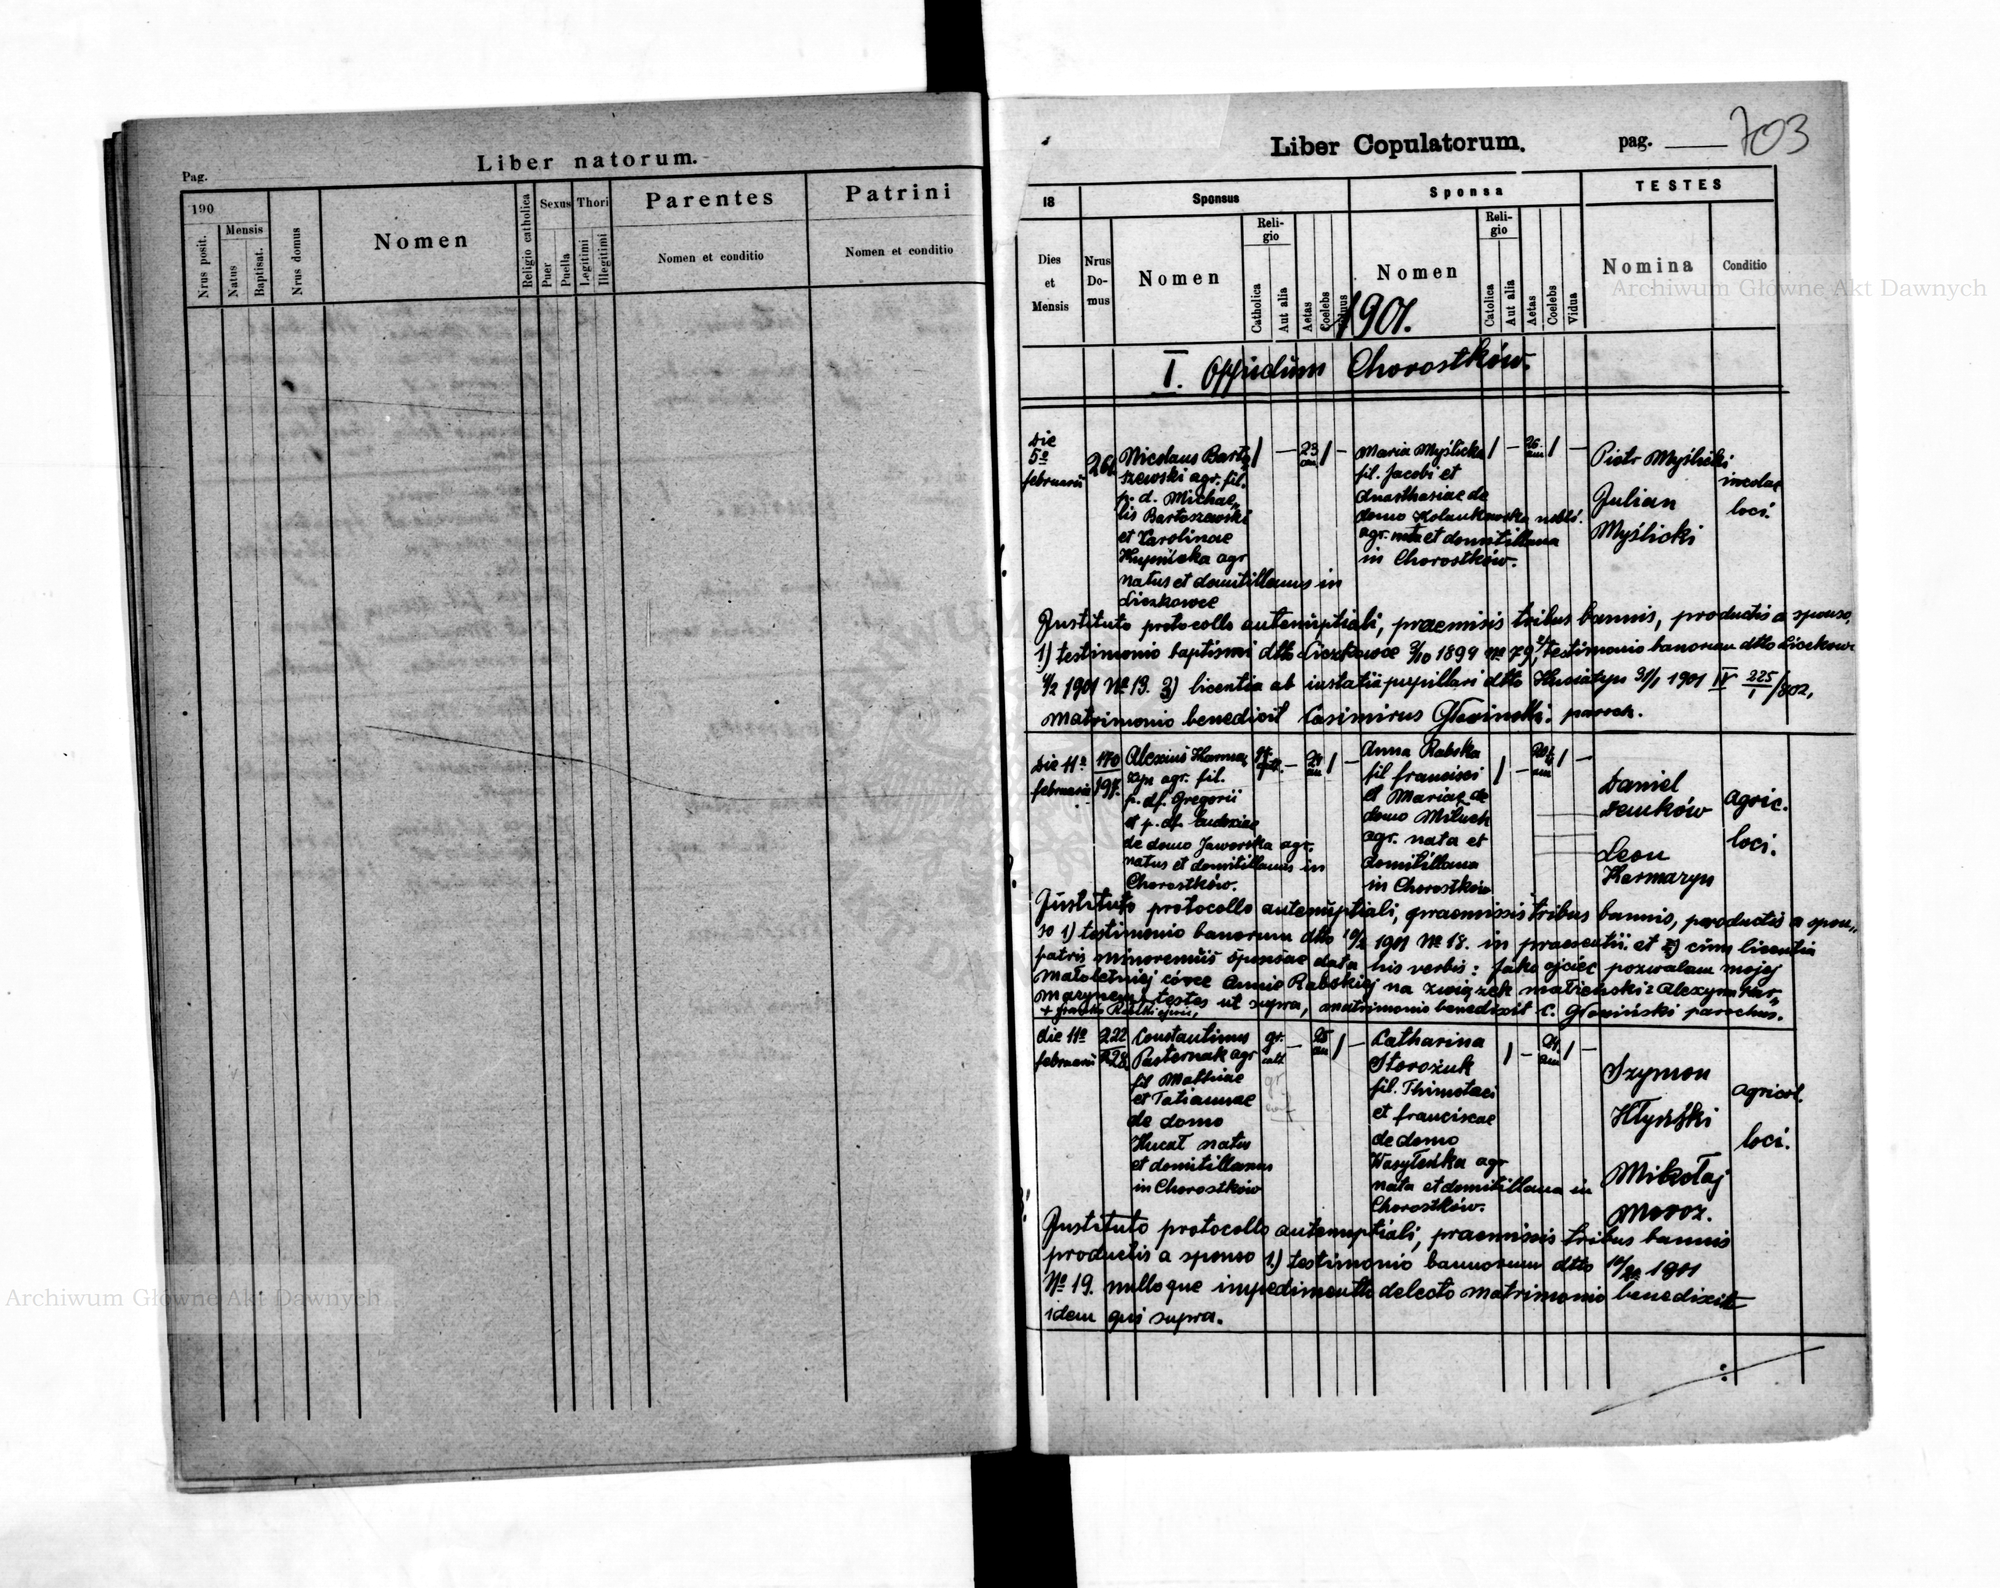 Liber natorum.
Pag.
190
Nrus posit.
Mensis
Natus
Baptisat.
Nrus domus
Nomen
Religio catholica
Sexus
Puer
Puella
Thori
Legitimi
Illegitimi
Parentes
Nomen et conditio
Patrini
Nomen et conditio
Liber Copulatorum.
pag. 703
18
Sponsus
Sponsa
TESTES
Dies
et
Mensis
Nrus
Do-
mus
Nomen
Reli-
gio
Catholica
Aut alia
Aetas
Coelebs
Nomen
Reli-
gio
Catolica
Aut alia
Aetas
Coelebs
Vidua
Nomina
Conditio
1901.
I. Oppidum Chorostków.
Die
5º
februarii
Nicolaus Barto
szewski agr. fil.
p. d. Michae„
lis Bartoszewski
et Carolinae
agr
natus et domitillanus in
Liczkowce
/ — 29 an / —
Maria Myślicka
fil. Jacobi et
Anasthasiae de
domo
agr. nata et domitillana
in Chorostków.
/ — 26 an / —
Piotr Myślicki
Julian
Myślicki
incolae
loci.
Instituto protocollo antenuptiali, praemisis tribus bannis, productis a sponso,
1) testimonio baptismi dtto Liczkowce 1899 Nº 79, 2) testimonio banorum dtto Liczkow
1901 Nº 13. 3) licentia ab pupillari dtto Husiatyn 31/1 1901 IV 225/1 /802,
matrimonio benedixit Casimirus Głowiński paroch.
Die 11º
februarii
170
197.
Alexius Karma„
zyn agr. fil.
p. df. Gregorii
et p. df. Eudoxiae
de domo Jaworska agr.
natus et domitillanus in
Chorostków.
— 24 an / —
Anna Rabska
fil francisci
et Mariae de
domo Miluch
agr. nata et
domitillana
in Chorostków
/ — 20 an / —
Daniel
Demków
Leon
Karmazyn
agric.
loci.
Instituto protocollo antenuptiali, praemissis tribus bannis, productis a spon„
so 1) testimonio banorum dtto 10/2 1901 Nº 18. in praesentii. et 2) cum licentia
patris minorennis sponsae data his verbis: Jako ojciec pozwalam mojej
małoletniej córce Annie Rabskiej na związek małżeński z Alexym Kar„
mazynem, testes ut supra, matrimonio benedixit C. Głowiński parochus.
die 11º
februarii
222
128
Constantinus
Pasternak agr
fil Mathiae
et Tatiannae
de domo
Hucał natus
et domitillanus
in Chorostków
gr.
cath
— 25 an / —
Catharina
Storożuk
fil. Thimotaei
et franciscae
de domo
Wasyleńka agr
nata et domitillana in
Chorostków.
/ — 24 an / —
Szymon
Kłyński
Mikołaj
Moroz.
agricol.
loci.
Instituto protocollo antenuptiali, praemissis tribus bannis
productis a sponso 1.) testimonio bannorum dtto 10/2 1901
Nº 19. nulloque impedimento delecto matrimonio benedixit
idem qui supra.
Archiwum Główne Akt Dawnych
Archiwum Główne Akt Dawnych